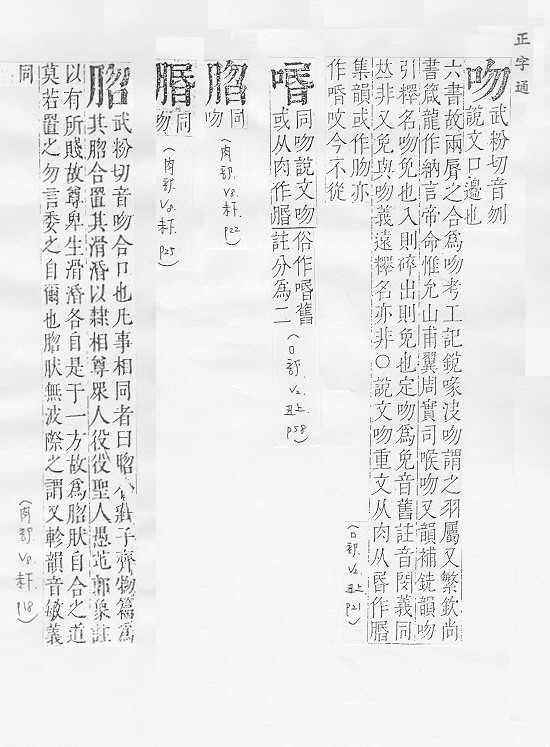 正字通
吻
武粉切音刎
說文口邊也
六書故兩脣之合爲吻考工記銳喙決吻謂之羽屬又繁欽尚
書箴龍作納言帝命惟允山甫翼周實司喉吻又韻補銑韻吻
引釋名吻免也入則碎出則免也定吻爲免音舊註音閔義同
𠀤非又免與吻義遠釋名亦非○說文吻重文从肉从昬作䐇
集韻或作肳亦
作㖧呅今不從
(口部. V2. 丑上. p21)
㖧
同吻說文吻俗作㖧舊
或从肉作䐇註分為二
(口部. V2. 丑上. p58)
䐇
同
吻
(肉部. V8. 未下. p22)
䐇
同
吻
(肉部. V8. 未下. p25)
䐇
武粉切音吻合口也凡事相同者曰䐇 莊子齊物篇爲
其䐇合置其滑涽以隸相尊眾人役役聖人愚芚郭象註
以有所賤故尊卑生滑涽各自是于一方故爲䐇狀自合之道
莫若置之勿言委之自爾也䐇狀無波際之謂又軫韻音敏義
同
(肉部. V8. 未下. p18)